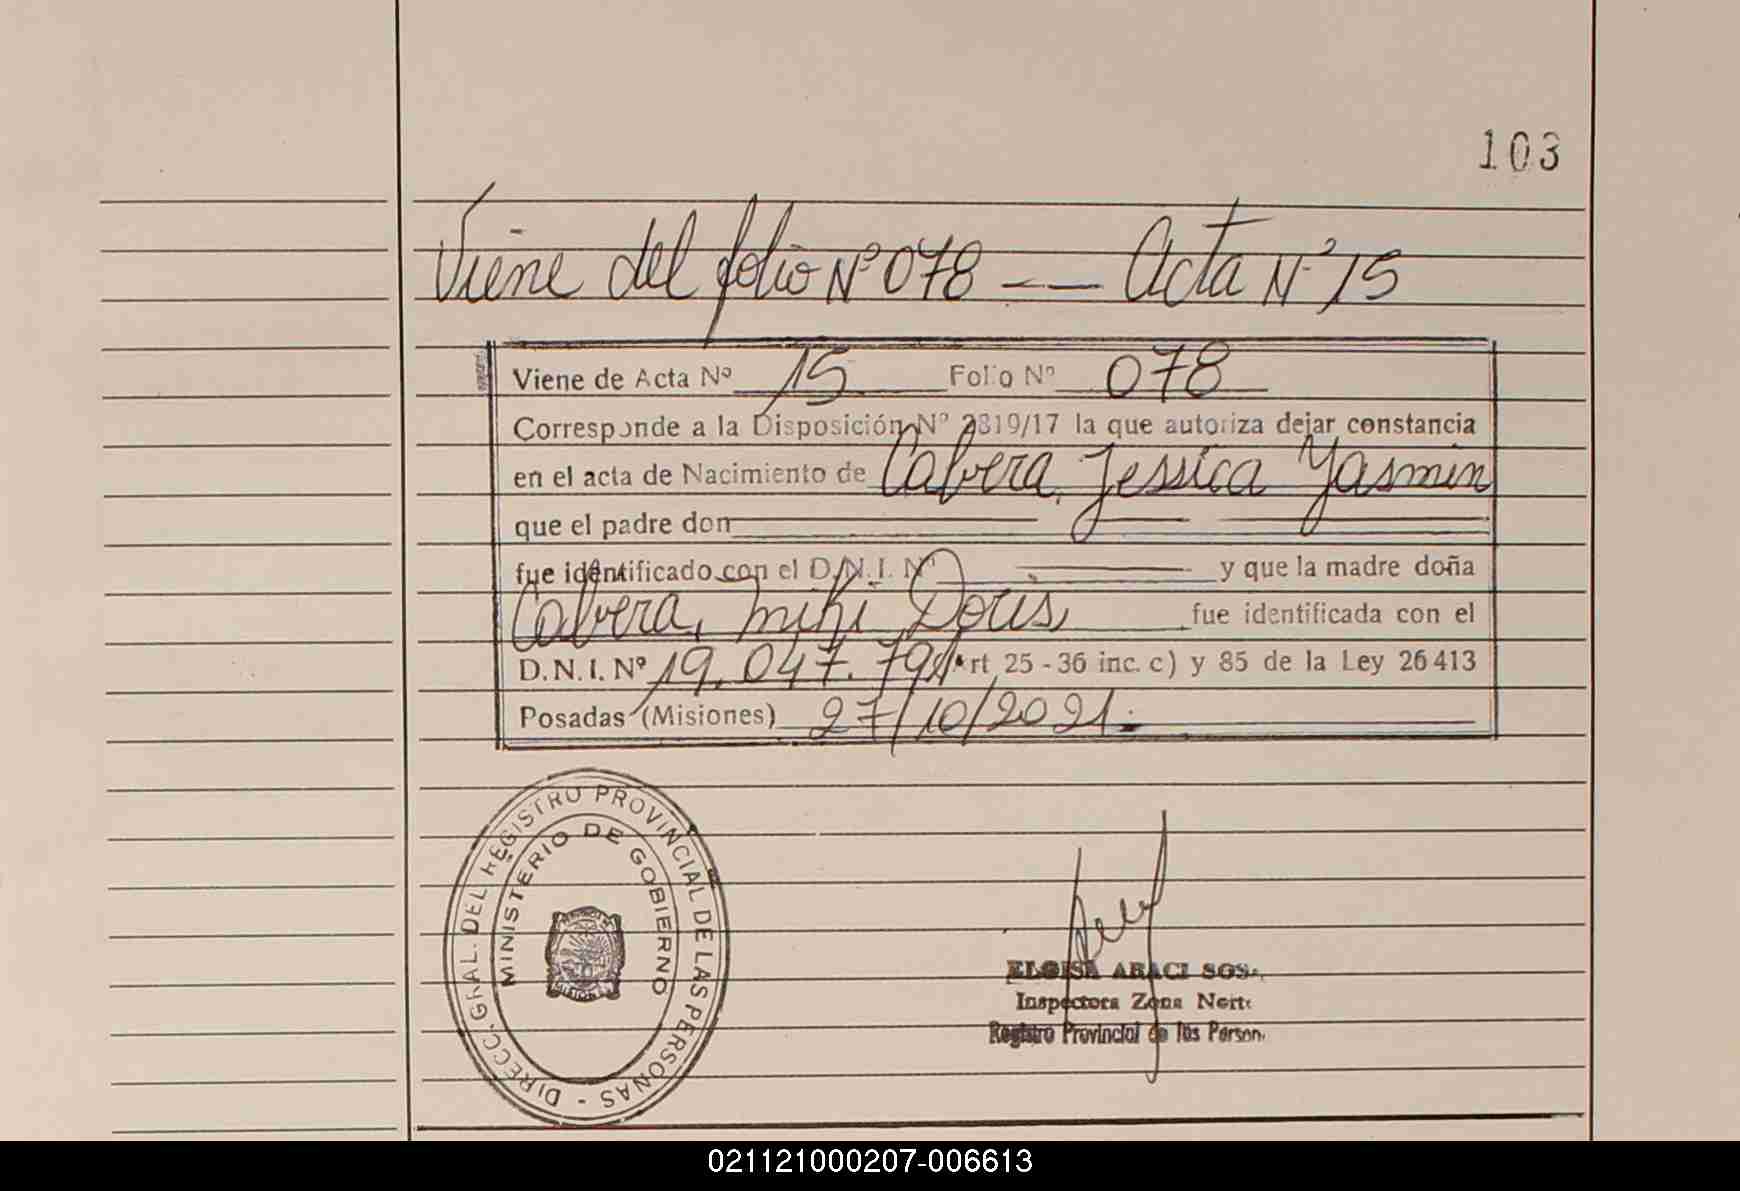 103
Viene del folio Nº 078 -- Acta Nº 15
Viene de Acta Nº 15 Folio Nº 078
Corresponde a la Disposición Nº 2819/17 la que autoriza dejar constancia
en el acta de Nacimiento de Cabrera, Jessica Yasmin
que el padre don
fue identificado con el D.N.I. Nº y que la madre doña
Cabrera, Miki Doris fue identificada con el
D.N.I. Nº 19.047.791 Art 25 - 36 inc. c) y 85 de la Ley 26413
Posadas (Misiones) 27/10/2021.
DIRECC. GRAL. DEL REGISTRO PROVINCIAL DE LAS PERSONAS -
MINISTERIO DE GOBIERNO
ELOISA ARACI SOS
Inspectora Zona Norte
Registro Provincial de las Person
021121000207-006613